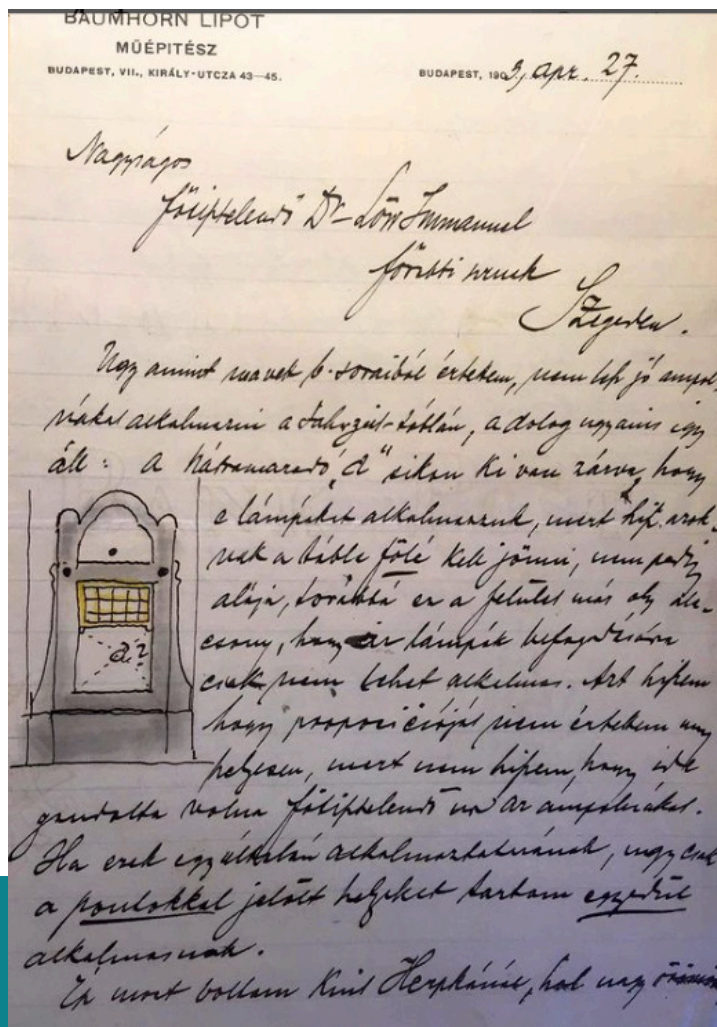 BAUMHORN LIPÓT
MŰÉPITÉSZ
BUDAPEST, VII., KIRÁLY-UTCZA 43—45.
BUDAPEST, 1903, apr. 27.
Nagyságos
főtisztelendő Dr Löw Immanuel
főrabbi urnak
Szegeden.
Ugy amint b. soraiból értettem, nem lesz jó
alkalmazni a Jahrzeit-táblán, a dolog ugyanis így
áll: A „d" sikon ki van zárva, hogy
e lámpákat alkalmazzuk, mert azok-
nak a tábla fölé kell jönni, nem pedig
alája, továbbá ez a felület más oly ala-
csony, hogy lámpák befogadására
csak nem lehet alkalmas. Azt hiszem
hogy propozicióját nem értettem
helyesen, mert nem hiszem, hogy ide
gondolta volna főtisztelendő ur az ampolnákat.
Ha ezek egyáltalán alkalmaztatnának, ugy csak
a pontokkal jelölt helyeket tartom egyedül
alkalmasnak.
most voltam kint hol nagy
d.?